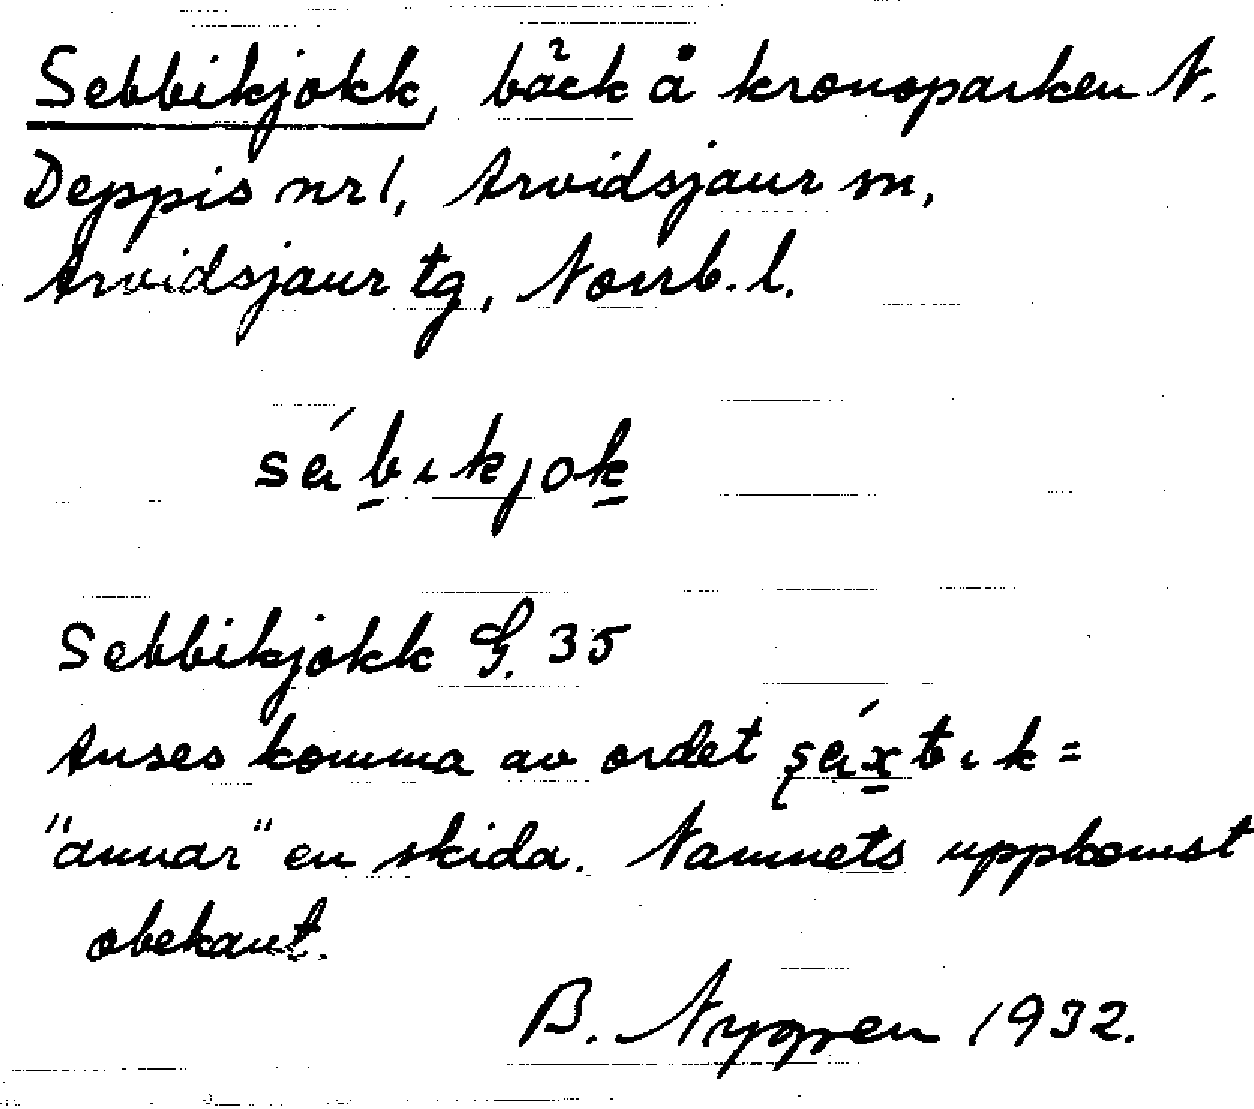 Sebbikjokk, bäck å kronoparken N.
Deppis nr 1, Arvidsjaur sn,
Arvidsjaur tg, Norrb. l.
sábıkjok
Sebbikjokk G. 35
Anses komma av ordet şáxtık =
"annar" en skida. Namnets uppkomst
obekant.
B. Nygren 1932.